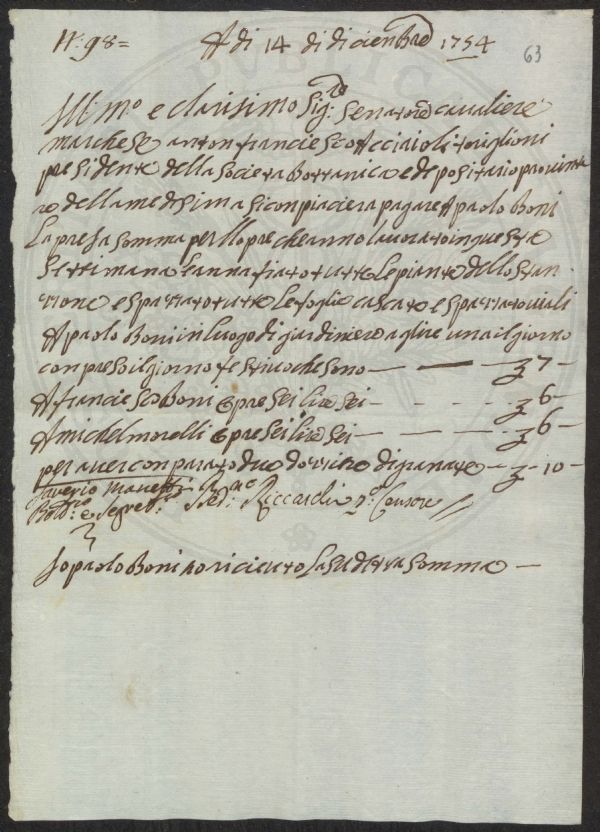 N: 98= A di 14 di dicienbre 1754 63
Ill:mo e clarisimo Sig:re Senatore cavaliere
marchese antonfranciesco Acciaioli toriglioni
presidente della societa Bottanica e depositario provinta
ro della medesima si conpiacierà pagare A paolo Boni
la presa somma per llopre che anno lavorato in questa
settimana e anna fiato tutte le piante dello stan-
zzone e spazzato tutte le foglie cascate e spazzato viali
A paolo Boni in luogo di giardiniero a lire una il giorno
con preso il giorno festivo che sono — — — 7 -
A franciesco Boni opre sei lire sei - - - - 6 -
A michel morelli opre sei lire sei - - - - 6 -
per aver conparato due dozzine di granate - - 10 -
Saverio Manetti
Bot:co e Segret:o Riccardi p:o Censore
Io paolo Boni o riciento la sudetta somma —
PUBLIC